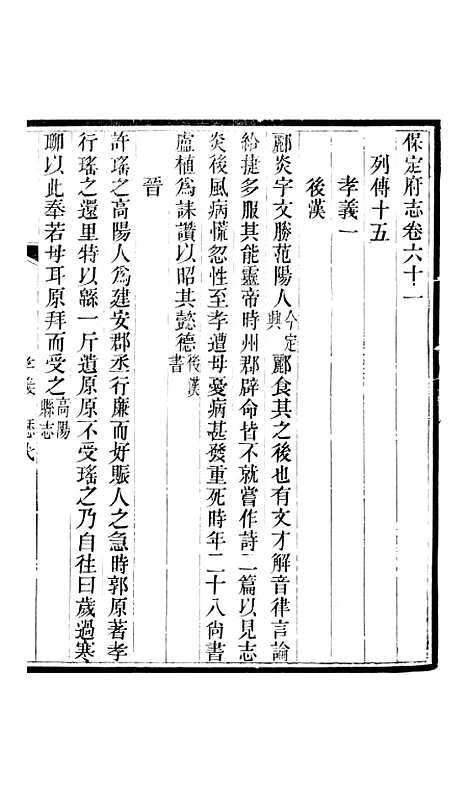 保定府志卷六十一
列傳十五
孝義一
後漢
酈炎字文勝范陽人今定興酈食其之後也有文才解音律言論
給捷多服其能靈帝時州郡辟命皆不就嘗作詩二篇以見志
炎後風病慌忽性至孝遭母憂病甚發重死時年二十八尚書
盧植爲誄讚以昭其懿德後漢書
晉
許瑤之高陽人爲建安郡丞行廉而好賑人之急時郭原著孝
行瑤之還里特以緜一斤遺原原不受瑤之乃自往曰歲過寒
聊以此奉若母耳原拜而受之高陽縣志
孝義 歷代